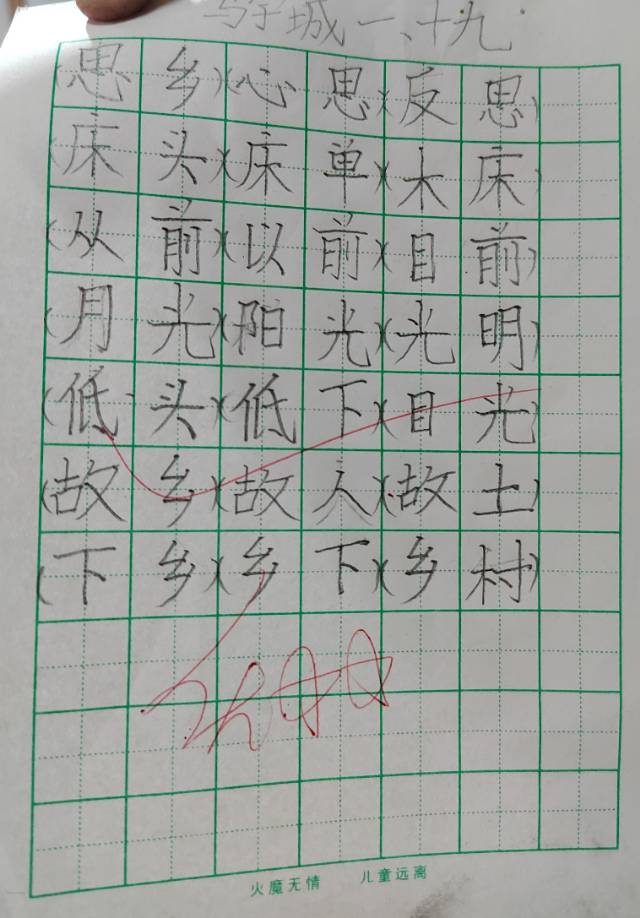 城一、十九
(思乡)(心思)(反思)
(床头)(床单)(木床)
(从前)(以前)(目前)
(月光)(阳光)(光明)
(低头)(低下)(目光)
(故乡)(故人)(故土)
(下乡)(乡下)(乡村)
100
火魔无情 儿童远离